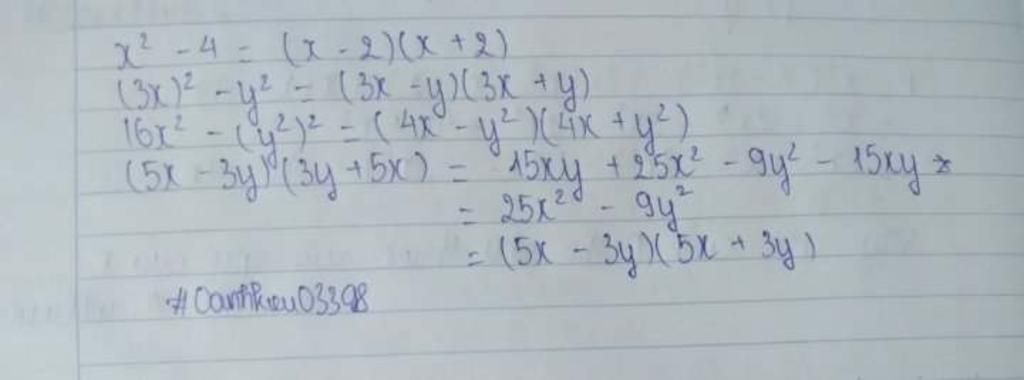 x² - 4 = (x - 2)(x + 2)
(3x)² - y² = (3x - y)(3x + y)
16x² - (y²)² = (4x - y²)(4x + y²)
(5x - 3y)(3y + 5x) = 15xy + 25x² - 9y² - 15xy
= 25x² - 9y²
= (5x - 3y)(5x + 3y)